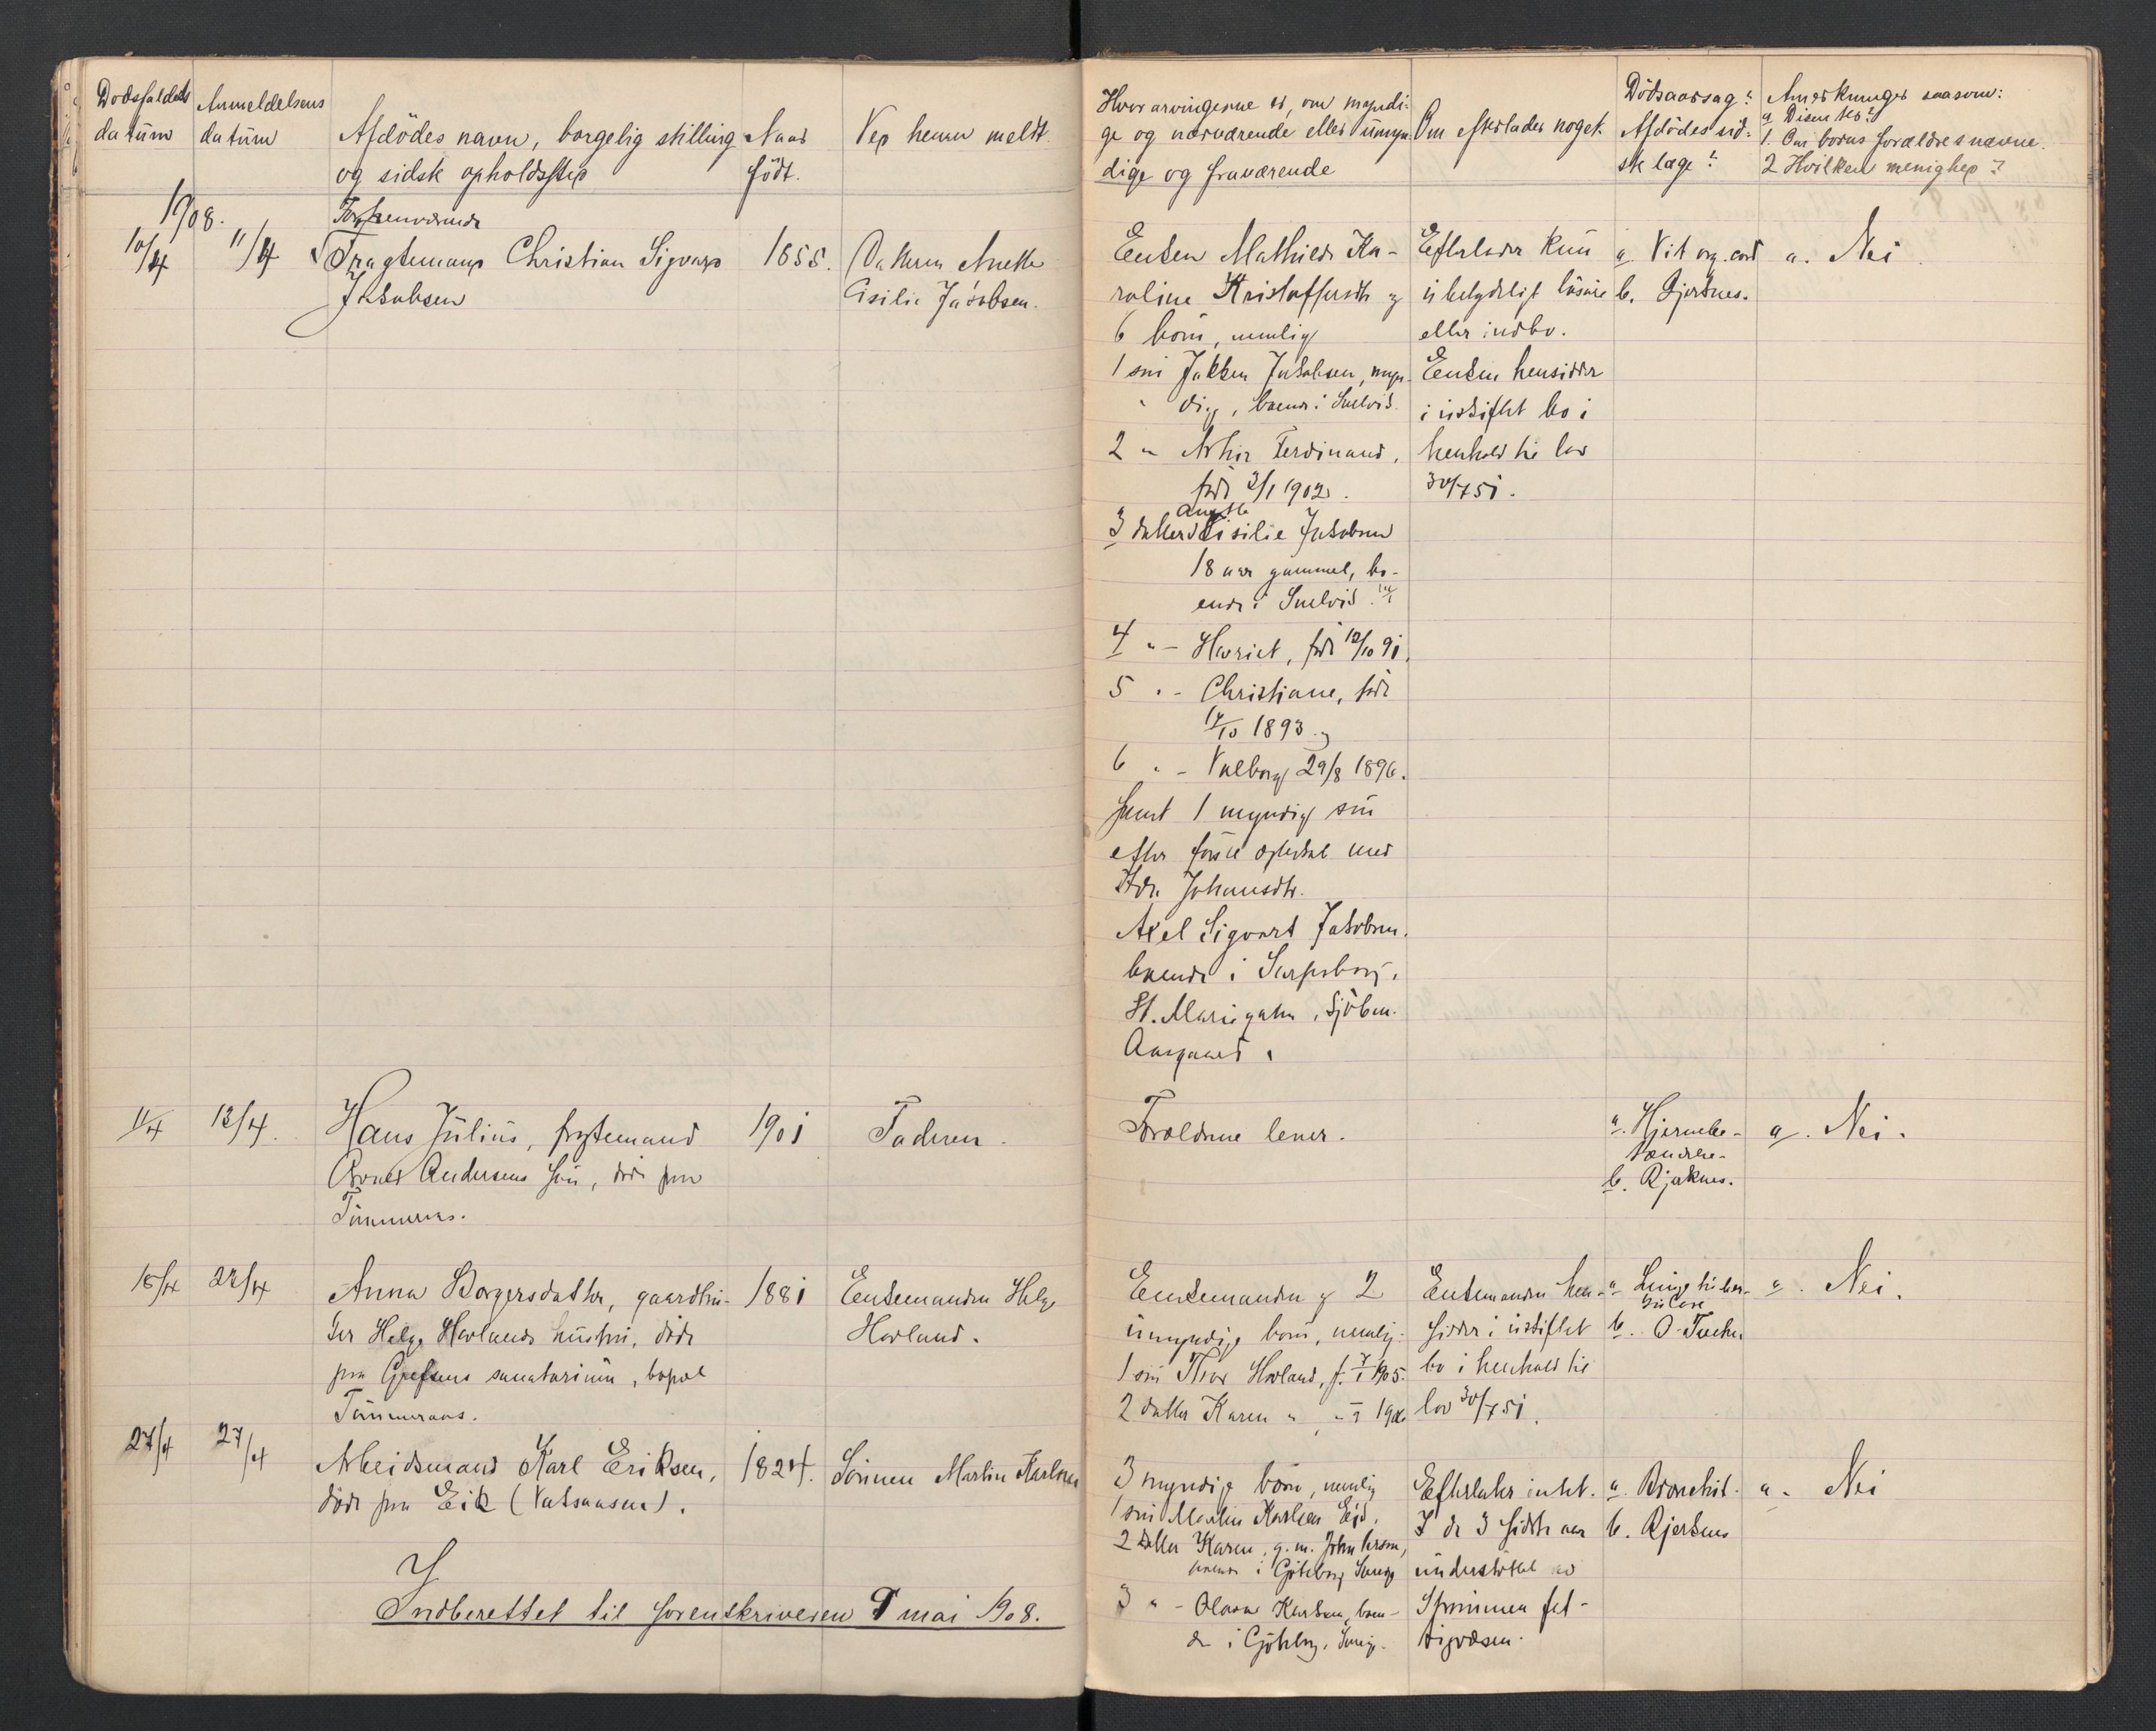 Dødsfaldets datum
Anmeldelsens datum
Afdødes navn, borgelig stilling og sidste opholdssted
Naar født.
Ved hvem meldt
Hvor arvingerne er, om myndige og nærværende eller umyndige og fraværende
Om efterlades noget.
Dødsaarsag? Afdødes sidste læge?
Anerkninger saasom:
a Disenter?
1. Om barns forældres navne.
2 Hvilken menighed?
1908.
10/4
11/4
Forhenværende
Fragtemand Christian Sigvard
Jakobsen
1855.
Datteren Anette
Cisilie Jakobsen.
Enken Mathilde Ka-
roline Kristoffersdtr og
6 børn, nemlig
1 søn Jakken Jakobsen, myn-
dig, boende i Svelvik.
2 " Arthur Ferdinand,
født 3/1 1902.
Anette
3 datter Cisilie Jakobsen
18 aar gammel, bo-
ende i Svelvik
4 " - Harriet, født 12/10 91.
5 " - Christiane, født
17/10 1893 og
6 " - Valborg 29/8 1896.
samt 1 myndig søn
efter første ægteskab med
Johansdtr.
Axel Sigvart Jakobsen.
boende i Sarpsborg,
St. Mariegaten,
Efterlader kun
ubetydeligt løsøre
eller indbo.
Enken hensidder
i uskiftet bo i
henhold til lov
30/7 51.
a. Vit. org. cord
b. Bjerknes.
a. Nei.
11/4
13/4.
Hans Julius, fragtemand
Andersens søn, død paa
Tømmeraas.
1901
Faderen.
Forældrene lever.
a. Hjernebe-
tændelse-
b. Bjerknes.
a. Nei.
15/4
22/4
Anna Borgersdatter, gaardbru-
ker Helge Hovlands hustru, døde
paa Grefsens sanatorium, bopæl
Tømmeraas.
1881
Enkemanden Helge
Hovland.
Enkemanden og 2
umyndige børn, nemlig.
1 søn Thor Hovland, f. 1905.
2 datter Karen " " 1906
Enkemanden hen-
sidder i uskiftet
bo i henhold til
lov 30/7 51.
a. Lungetuber-
kulose
b. O.
a. Nei.
27/4
27/4
Arbeidsmand Karl Eriksen,
døde paa Eik (Vatsaasen).
1824.
Sønnen Martin Karlsen
3 myndige børn, nemlig
1 søn Martin Karlsen Eik.
2 datter Karen, g. m.
boende i Gøteborg Sverige
3 " - Karlsen, boen-
de i Gøteborg, Sverige.
Efterlader intet.
I de 3 sidste aar
understøttet av
Strømmen fat-
tigvæsen.
a. Bronchit.
b. Bjerknes
a. Nei
Indberettet til sorenskriveren 9 mai 1908.